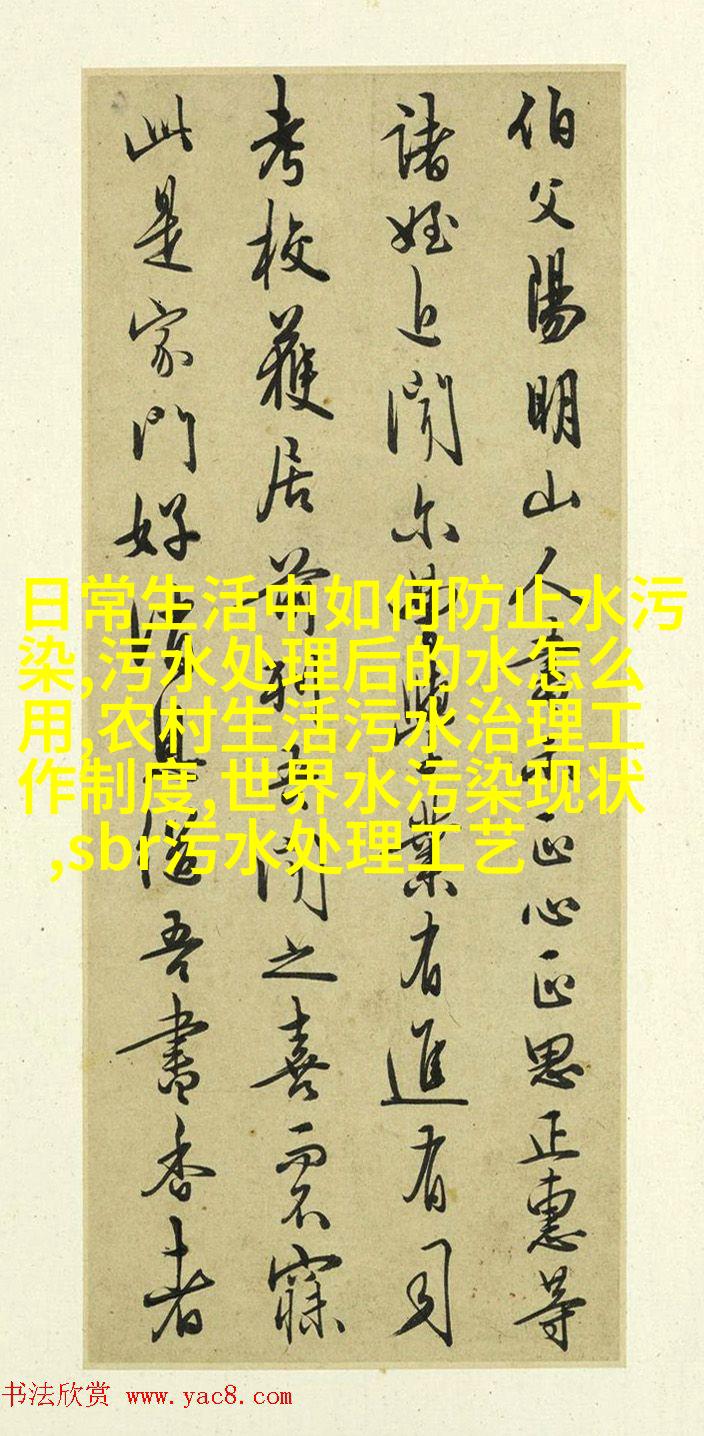 伯父陽明山人書示正心正思正惠等
諸姪近聞尔曹學業有進有司
考校獲居前列吾聞之喜而不寐
此是家門好消息繼吾書香者
日常生活中如何防止水污
染,污水处理后的水怎么
用,农村生活污水治理工
作制度,世界水污染现状
,sbr污水处理工艺
书法欣赏 www.yac8.com